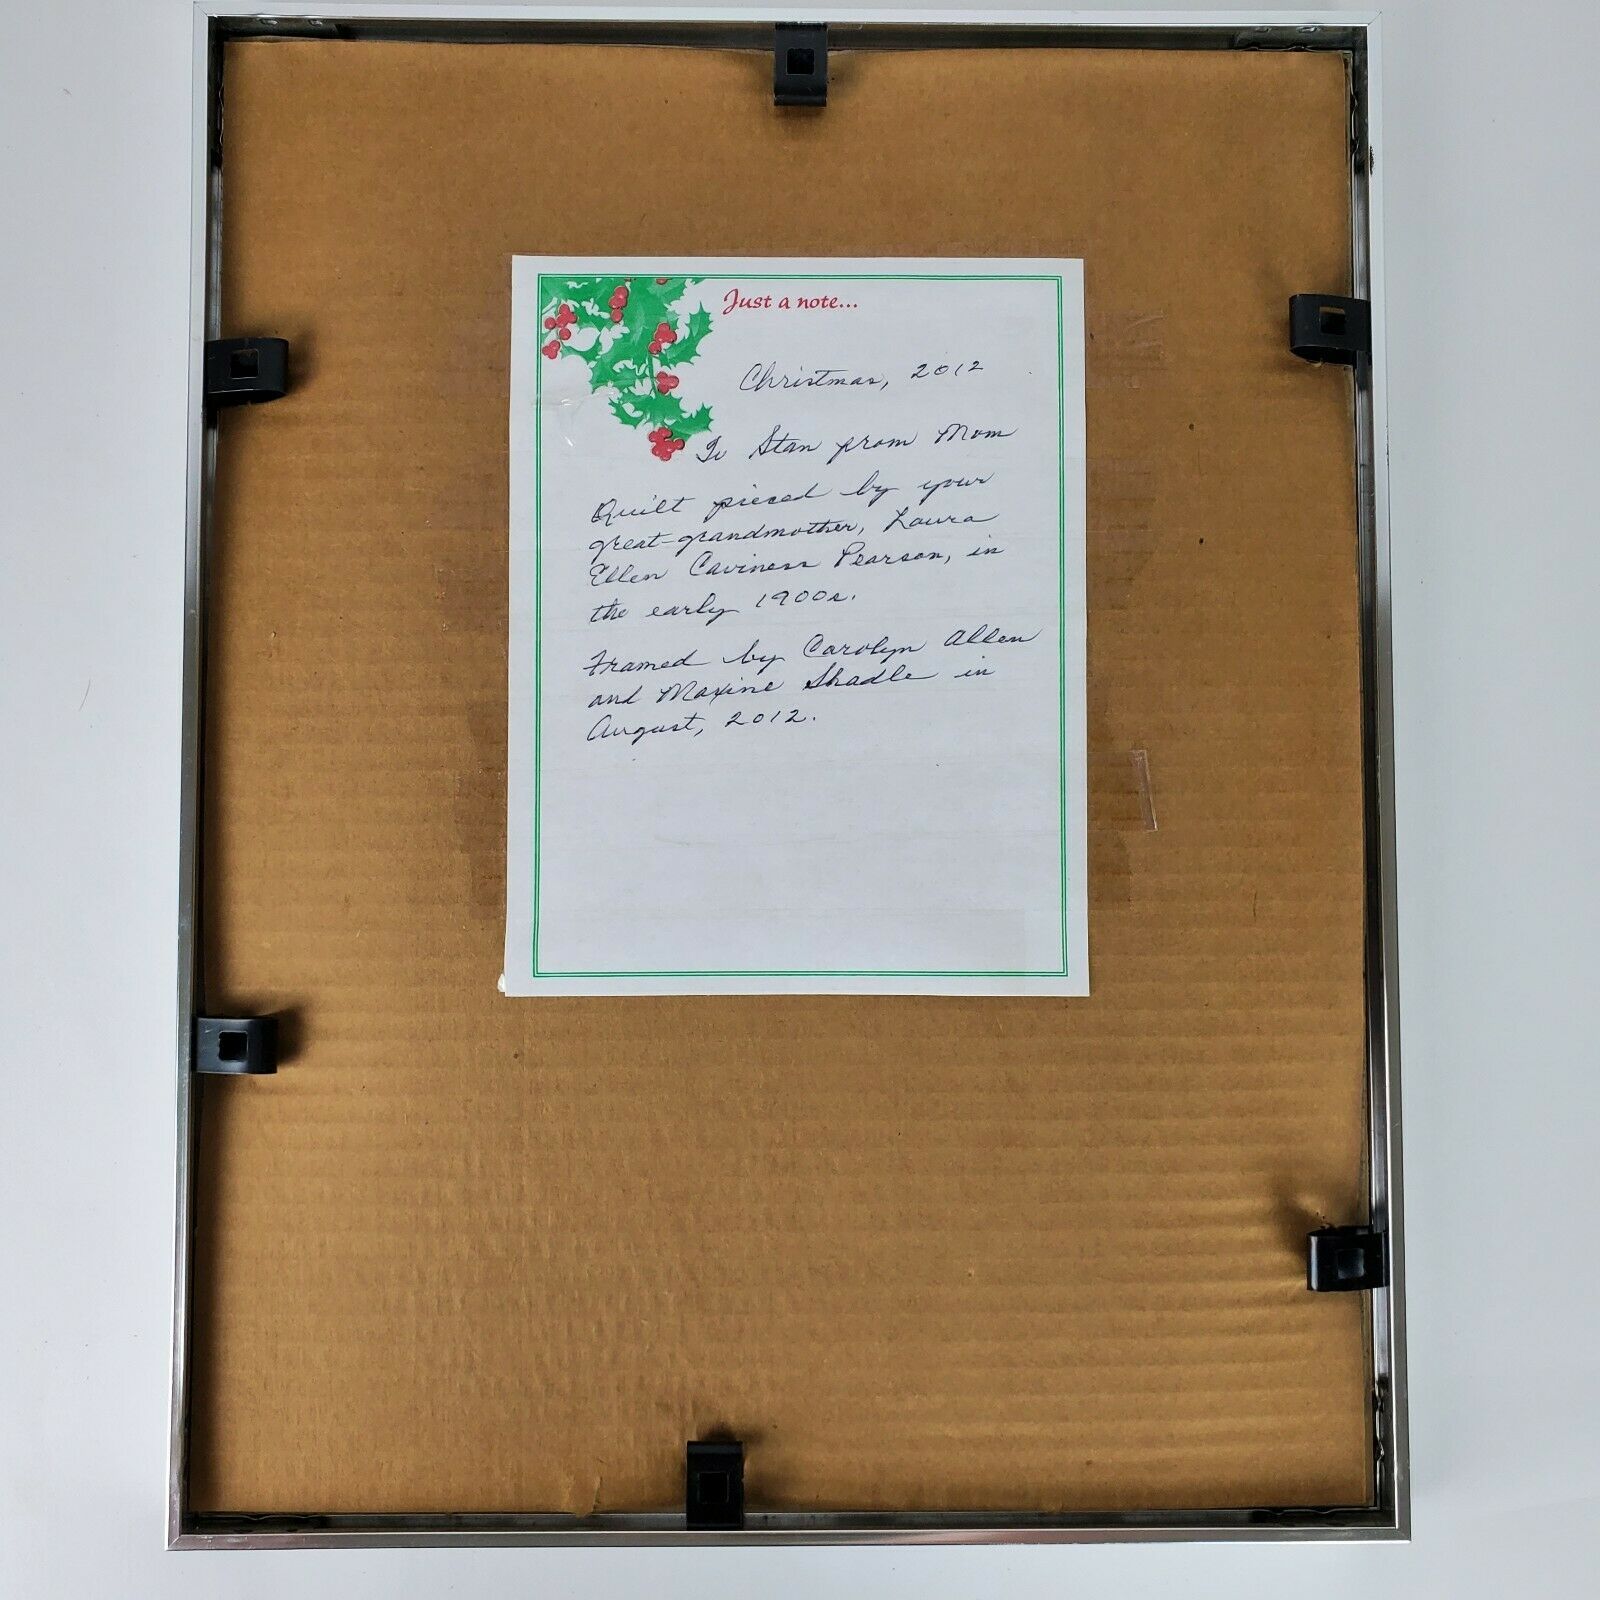 Just a note...
Christmas, 2012
To Stan from Mom
Quilt pieced by your
great-grandmother, Laura
Ellen Caviness Pearson, in
the early 1900s.
Framed by Carolyn Allen
and Maxine Shadle in
August, 2012.